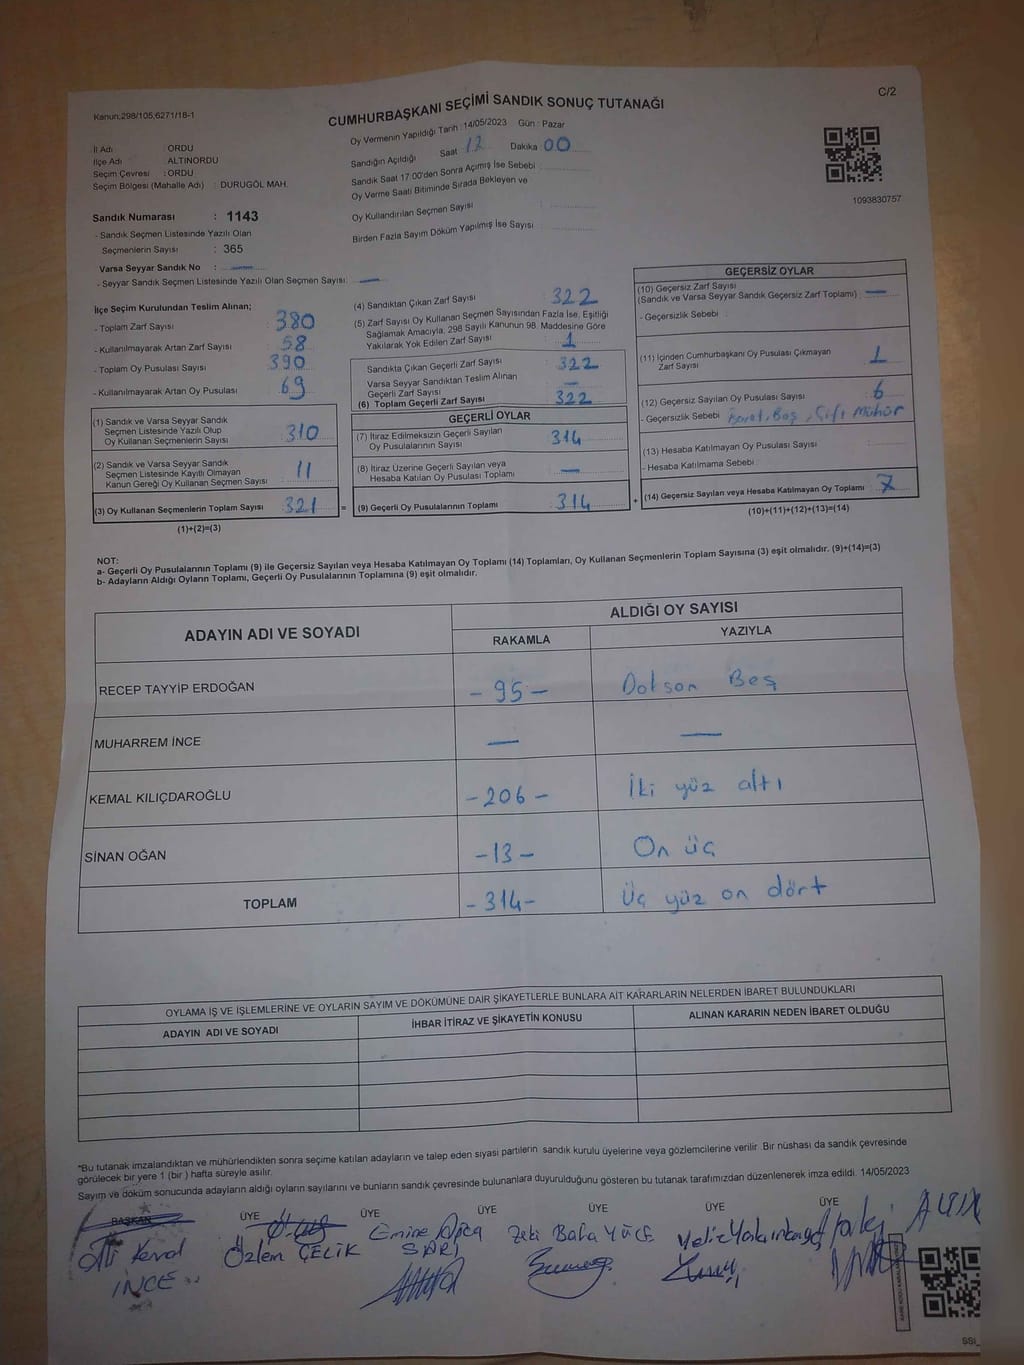 Kanun,298/105,6271/18-1
CUMHURBAŞKANI SEÇİMİ SANDIK SONUÇ TUTANAĞI
C/2
Oy Vermenin Yapıldığı Tarih : 14/05/2023 Gün : Pazar
İl Adı : ORDU
İlçe Adı : ALTINORDU
Seçim Çevresi : ORDU
Seçim Bölgesi (Mahalle Adı) : DURUGÖL MAH.
Sandığın Açıldığı Saat 17 Dakika 00
Sandık Saat 17:00'den Sonra Açımış İse Sebebi
Oy Verme Saati Bitiminde Sırada Bekleyen ve
Oy Kullandırılan Seçmen Sayısı :
Birden Fazla Sayım Döküm Yapılmış İse Sayısı :
1093830757
Sandık Numarası : 1143
- Sandık Seçmen Listesinde Yazılı Olan
Seçmenlerin Sayısı : 365
Varsa Seyyar Sandık No : —
- Seyyar Sandık Seçmen Listesinde Yazılı Olan Seçmen Sayısı: —
İlçe Seçim Kurulundan Teslim Alınan;
- Toplam Zarf Sayısı : 380
- Kullanılmayarak Artan Zarf Sayısı : 58
- Toplam Oy Pusulası Sayısı : 390
- Kullanılmayarak Artan Oy Pusulası : 69
(1) Sandık ve Varsa Seyyar Sandık
Seçmen Listesinde Yazılı Olup
Oy Kullanan Seçmenlerin Sayısı : 310
(2) Sandık ve Varsa Seyyar Sandık
Seçmen Listesinde Kayıtlı Olmayan
Kanun Gereği Oy Kullanan Seçmen Sayısı : 11
(3) Oy Kullanan Seçmenlerin Toplam Sayısı : 321 =
(1)+(2)=(3)
(4) Sandıktan Çıkan Zarf Sayısı : 322
(5) Zarf Sayısı Oy Kullanan Seçmen Sayısından Fazla İse, Eşitliği
Sağlamak Amacıyla, 298 Sayılı Kanunun 98. Maddesine Göre
Yakılarak Yok Edilen Zarf Sayısı : 1
Sandıkta Çıkan Geçerli Zarf Sayısı : 322
Varsa Seyyar Sandıktan Teslim Alınan
Geçerli Zarf Sayısı : —
(6) Toplam Geçerli Zarf Sayısı : 322
GEÇERLİ OYLAR
(7) İtiraz Edilmeksizin Geçerli Sayılan
Oy Pusulalarının Sayısı : 314
(8) İtiraz Üzerine Geçerli Sayılan veya
Hesaba Katılan Oy Pusulası Toplamı : —
(9) Geçerli Oy Pusulalarının Toplamı : 314 +
GEÇERSİZ OYLAR
(10) Geçersiz Zarf Sayısı
(Sandık ve Varsa Seyyar Sandık Geçersiz Zarf Toplamı) : —
- Geçersizlik Sebebi :
(11) İçinden Cumhurbaşkanı Oy Pusulası Çıkmayan
Zarf Sayısı : 1
(12) Geçersiz Sayılan Oy Pusulası Sayısı : 6
- Geçersizlik Sebebi : Boş, Çift Mühür
(13) Hesaba Katılmayan Oy Pusulası Sayısı :
- Hesaba Katılmama Sebebi :
(14) Geçersiz Sayılan veya Hesaba Katılmayan Oy Toplamı : 7
(10)+(11)+(12)+(13)=(14)
NOT:
a- Geçerli Oy Pusulalarının Toplamı (9) ile Geçersiz Sayılan veya Hesaba Katılmayan Oy Toplamı (14) Toplamları, Oy Kullanan Seçmenlerin Toplam Sayısına (3) eşit olmalıdır. (9)+(14)=(3)
b- Adayların Aldığı Oyların Toplamı, Geçerli Oy Pusulalarının Toplamına (9) eşit olmalıdır.
ADAYIN ADI VE SOYADI
ALDIĞI OY SAYISI
RAKAMLA YAZIYLA
RECEP TAYYİP ERDOĞAN - 95 - Doksan Beş
MUHARREM İNCE — —
KEMAL KILIÇDAROĞLU - 206 - İki yüz altı
SİNAN OĞAN - 13 - On üç
TOPLAM - 314 - Üç yüz on dört
OYLAMA İŞ VE İŞLEMLERİNE VE OYLARIN SAYIM VE DÖKÜMÜNE DAİR ŞİKAYETLERLE BUNLARA AİT KARARLARIN NELERDEN İBARET BULUNDUKLARI
ADAYIN ADI VE SOYADI İHBAR İTİRAZ VE ŞİKAYETİN KONUSU ALINAN KARARIN NEDEN İBARET OLDUĞU
*Bu tutanak imzalandıktan ve mühürlendikten sonra seçime katılan adayların ve talep eden siyasi partilerin sandık kurulu üyelerine veya gözlemcilerine verilir Bir nüshası da sandık çevresinde
görülecek bir yere 1 (bir ) hafta süreyle asılır.
Sayım ve döküm sonucunda adayların aldığı oyların sayılarını ve bunların sandık çevresinde bulunanlara duyurulduğunu gösteren bu tutanak tarafımızdan düzenlenerek imza edildi. 14/05/2023
BAŞKAN ÜYE ÜYE ÜYE ÜYE ÜYE ÜYE
Ali Kemal İNCE
Özlem ÇELİK
Emine SARI
Zeki Baha YÜCE